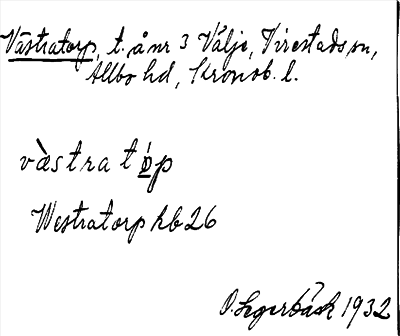 Västratorp, t. å nr 3 Välje, Virestads sn,
Allbo hd, Kronob. l.
vàstra tórp
Westratorp hb 26
O. Legerbäck 1932